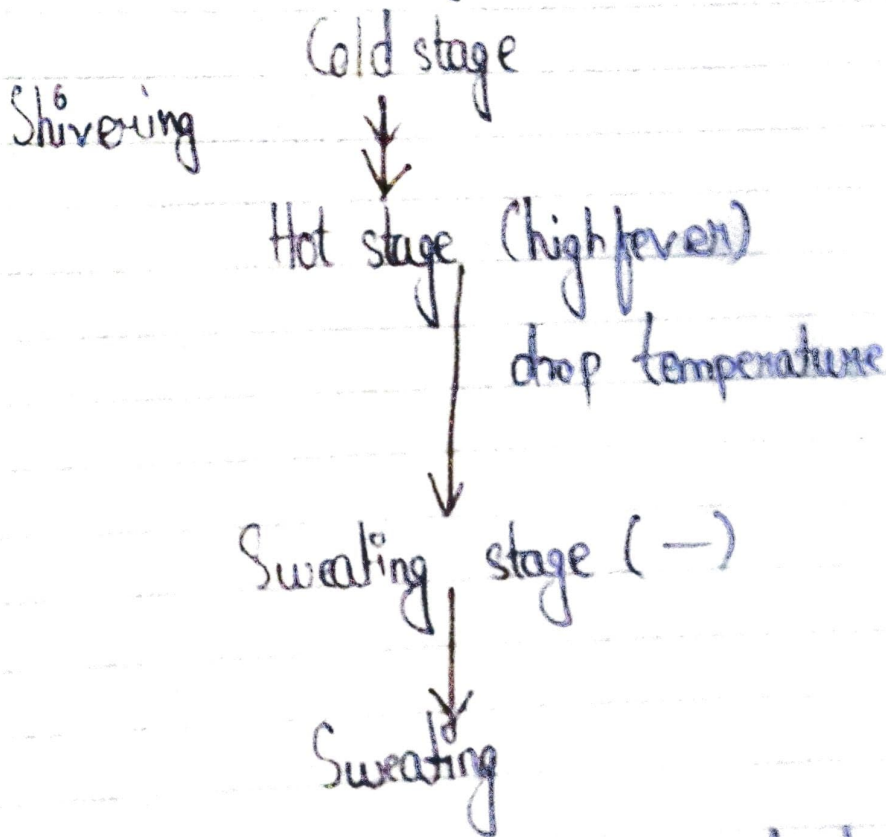 Cold stage
Shivering
Hot stage (high fever)
drop temperature
Sweating stage (—)
Sweating